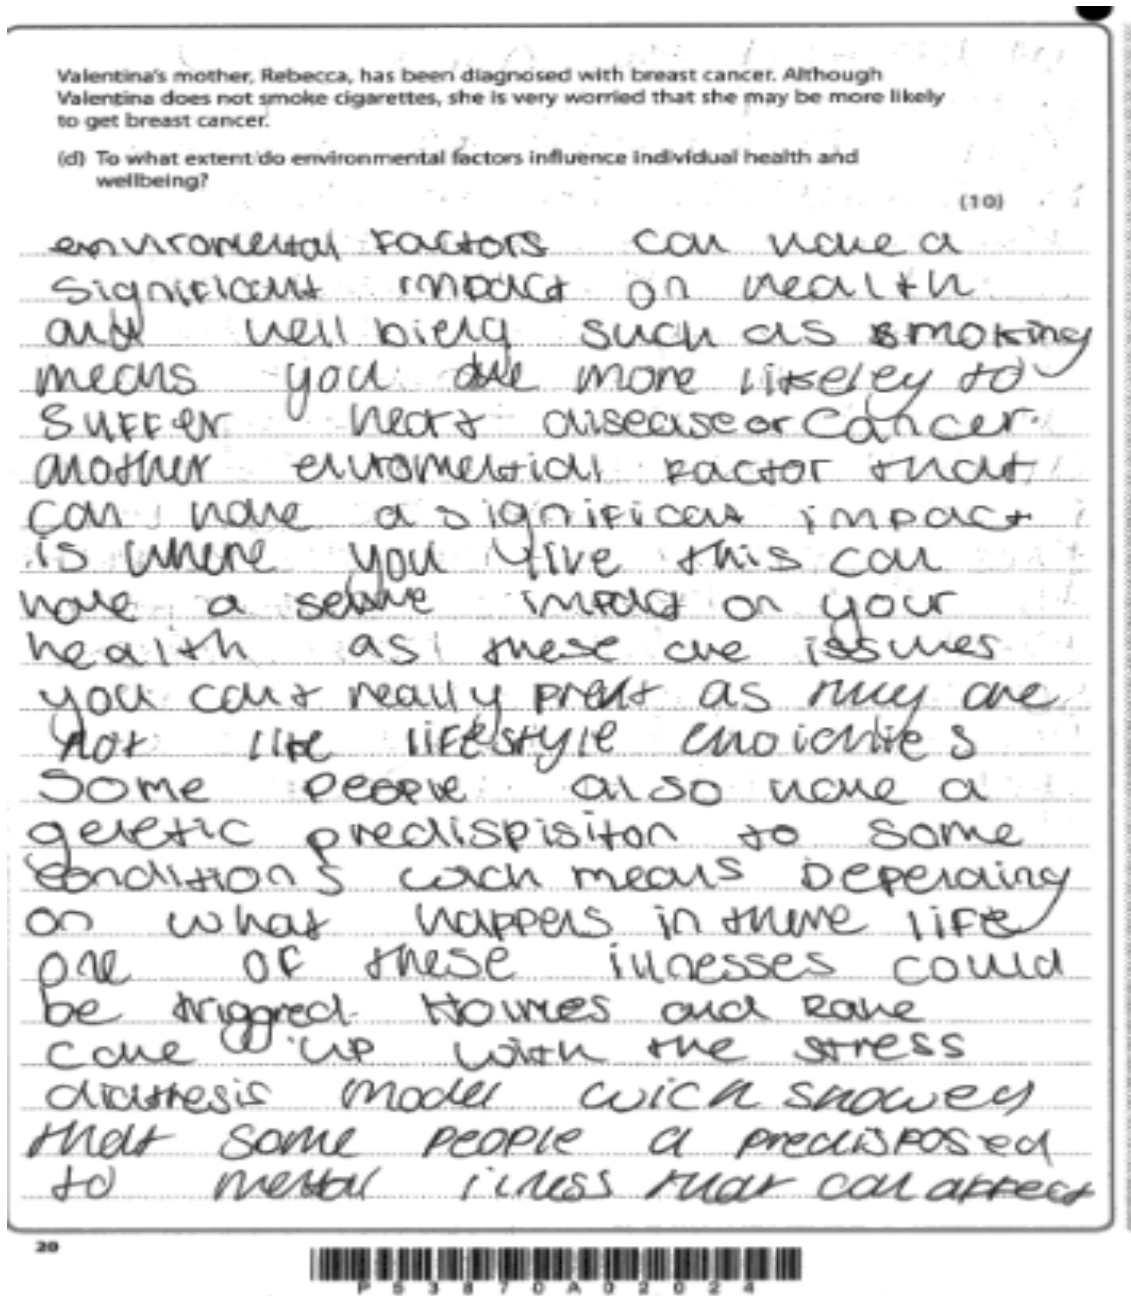 Valentina's mother, Rebecca, has been diagnosed with breast cancer. Although
Valentina does not smoke cigarettes, she is very worried that she may be more likely
to get breast cancer.
(d) To what extent do environmental factors influence individual health and
wellbeing?
(10)
enviromental factors can have a
significant impact on health
and well bieng such as smoking
means you are more likeley to
suffer heart disease or cancer.
another
factor that
can have a significant impact
is where you live this can
have a impact on your
health as these are issues
you can't really as they are
not like lifestyle
some people also have a
genetic predispisiton to some
conditions wich means Depending
on what happens in there life
one of these illnesses could
be triggred. Holmes and Rahe
came up with the stress
diathesis model wich showed
that some people a predisposed
to mental illness that can affect
20
P53870A02024